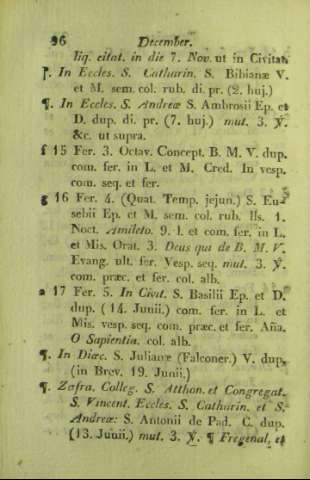 96 December.
liq. eitat. in die 7. Nov. ut in Civitat.
¶. In Eccles. S. Catharin. S. Bibianæ V.
et M. sem. col. rub. di. pr. (2. huj.)
¶. In Eccles. S. Andreæ S. Ambrosii Ep. et
D. dup. di. pr. (7. huj.) mut. 3. ℣.
&c. ut supra.
f 15 Fer. 3. Octav. Concept. B. M. V. dup.
com. fer. in L. et M. Cred. In vesp.
com. seq. et fer.
g 16 Fer. 4. (Quat. Temp. jejun.) S. Eu-
sebii Ep. et M. sem. col. rub. lls. 1.
Noct. Amileto. 9. l. et com. fer. in L.
et Mis. Orat. 3. Deus qui de B. M. V.
Evang. ult. fer. Vesp. seq. mut. 3. ℣.
com. præc. et fer. col. alb.
a 17 Fer. 5. In Civit. S. Basilii Ep. et D.
dup. (14. Junii.) com. fer. in L. et
Mis. vesp. seq. com. præc. et fer. Aña.
O Sapientia. col. alb.
¶. In Diœc. S. Julianæ (Falconer.) V. dup.
(in Brev. 19. Junii.)
¶. Zafra. Colleg. S. Atthon. et Congregat.
S. Vincent. Eccles. S. Catharin. et S.
Andreæ: S. Antonii de Pad. C. dup.
(13. Junii.) mut. 3. ℣. ¶ Fregenal, et